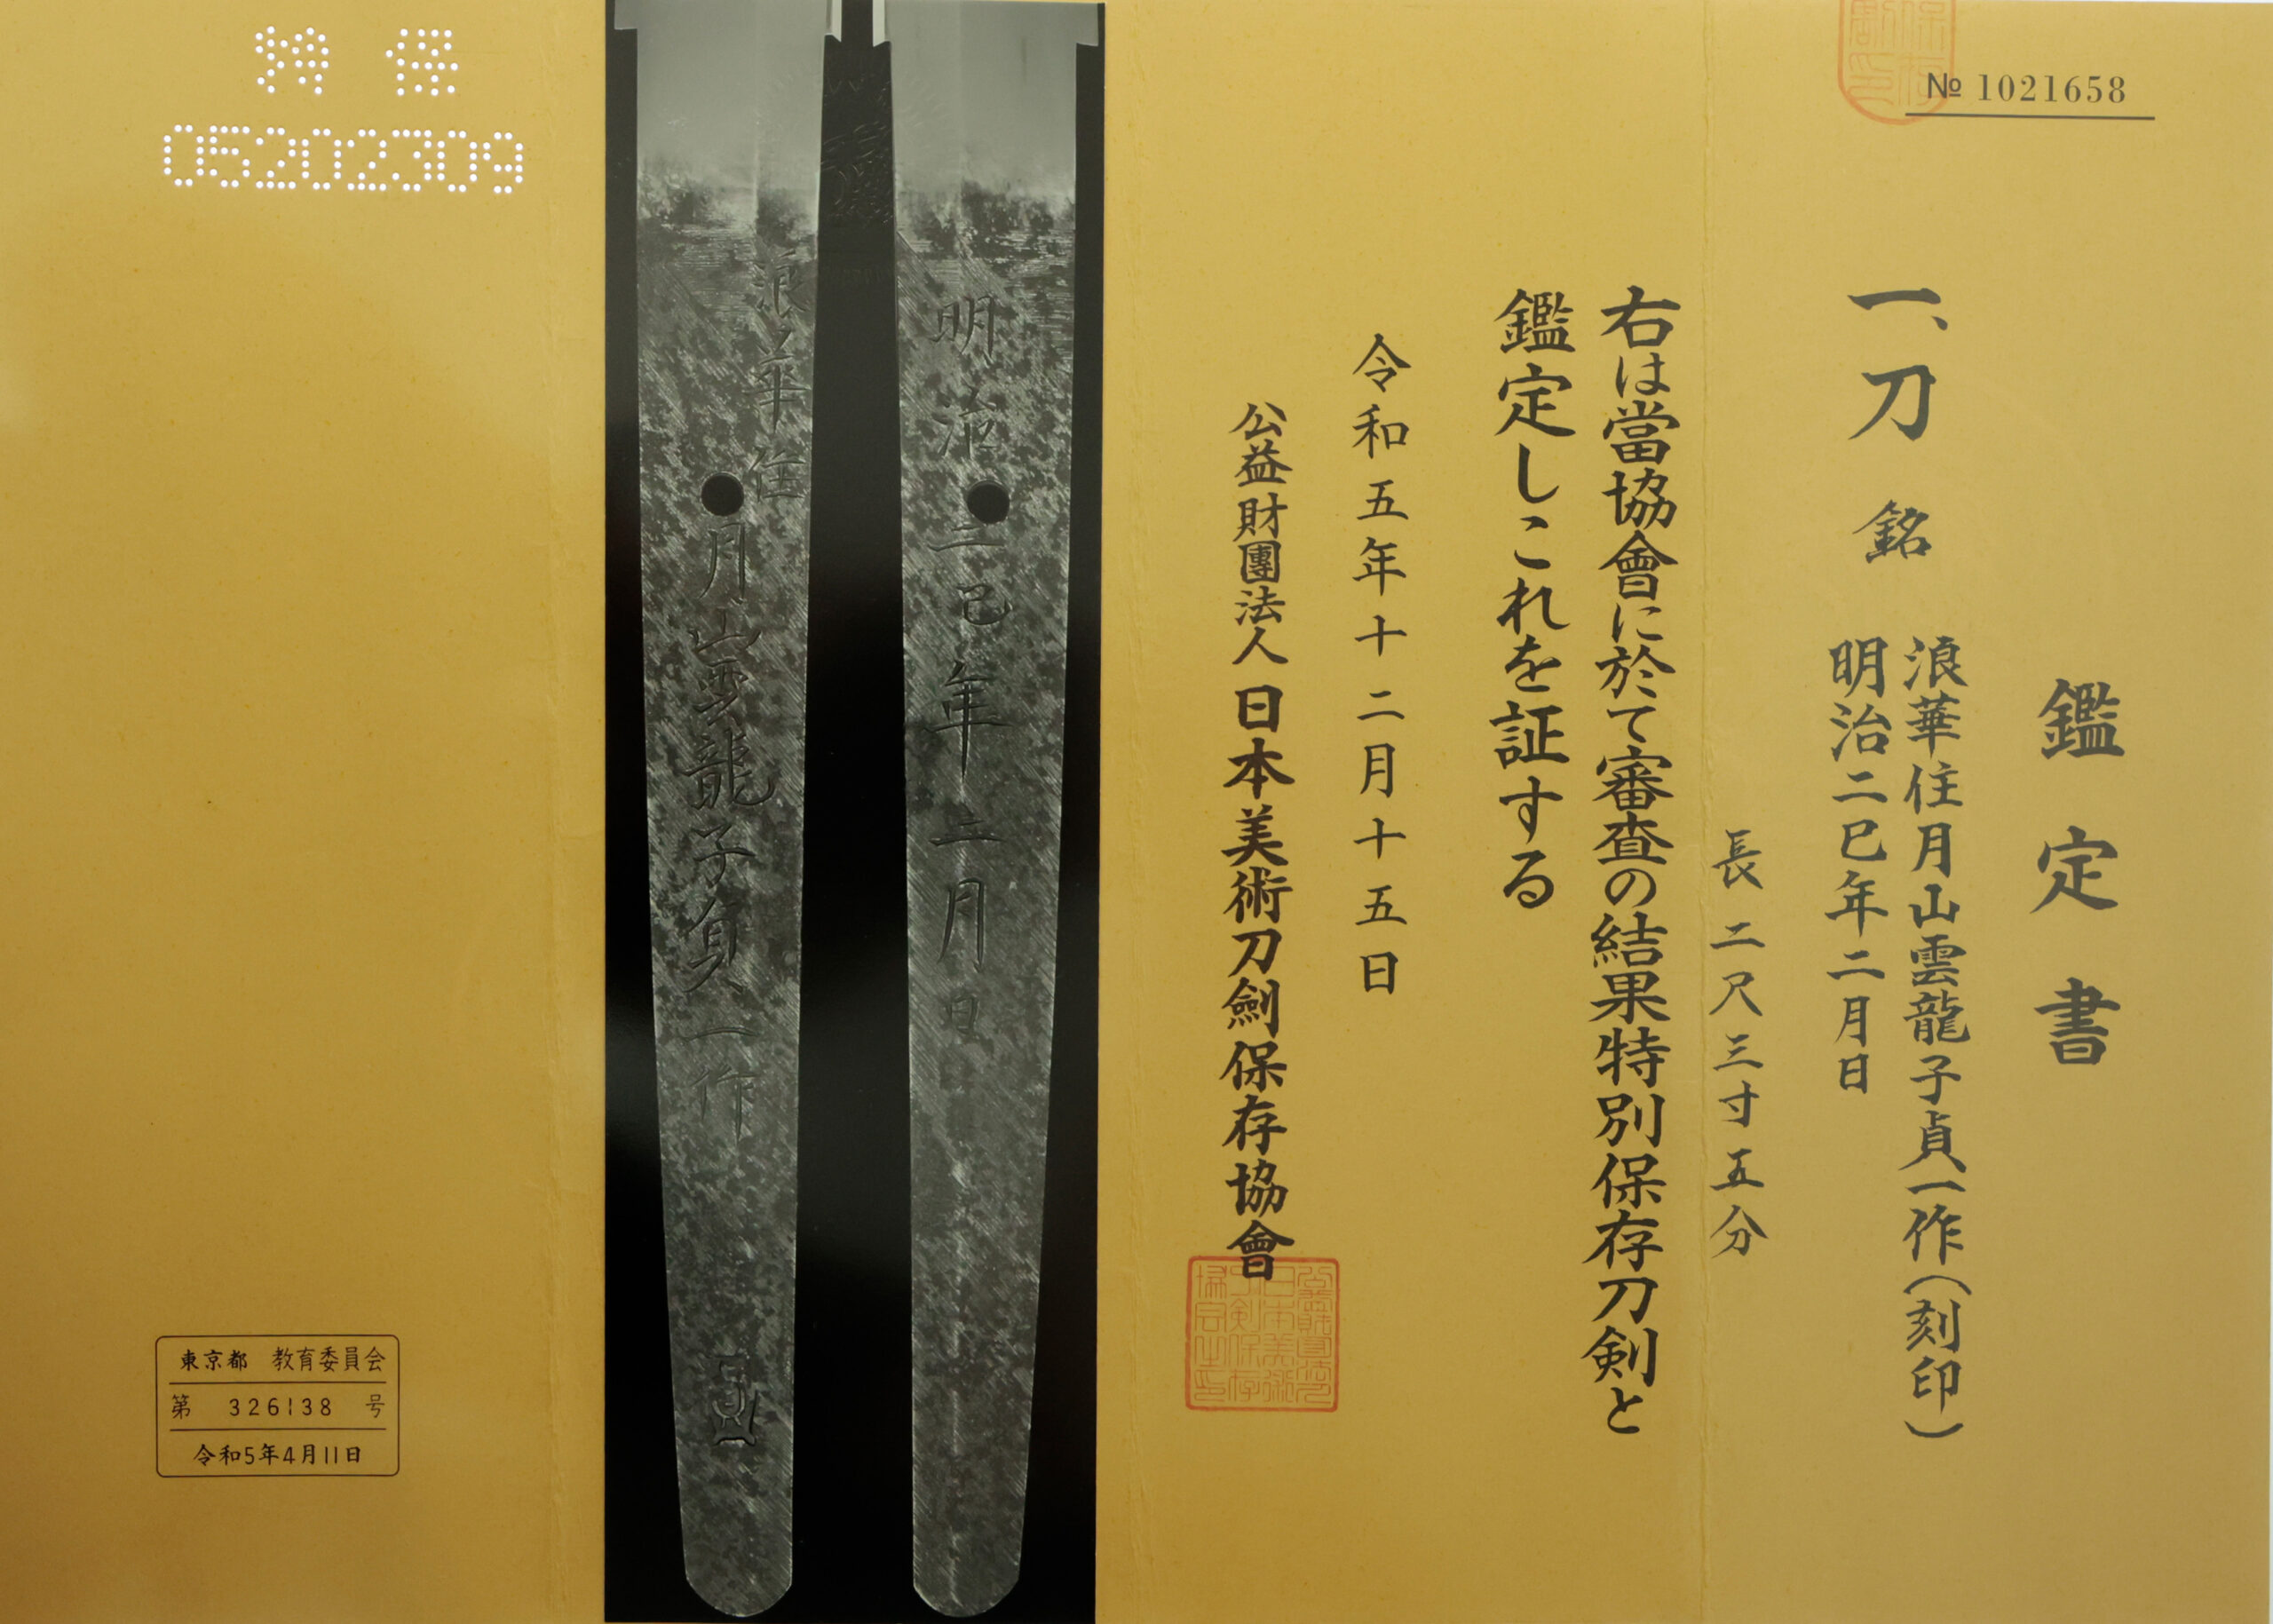 № 1021658
鑑定書
一、刀 銘 浪華住月山雲龍子貞一作(刻印)
明治二巳年二月日
長 二尺三寸五分
右は當協會に於て審査の結果特別保存刀剣と
鑑定しこれを証する
令和五年十二月十五日
公益財團法人 日本美術刀劍保存協會
明治二巳年二月日
浪華住
月山雲龍子貞一作
特保
05202309
東京都 教育委員会
第 326138 号
令和5年4月11日